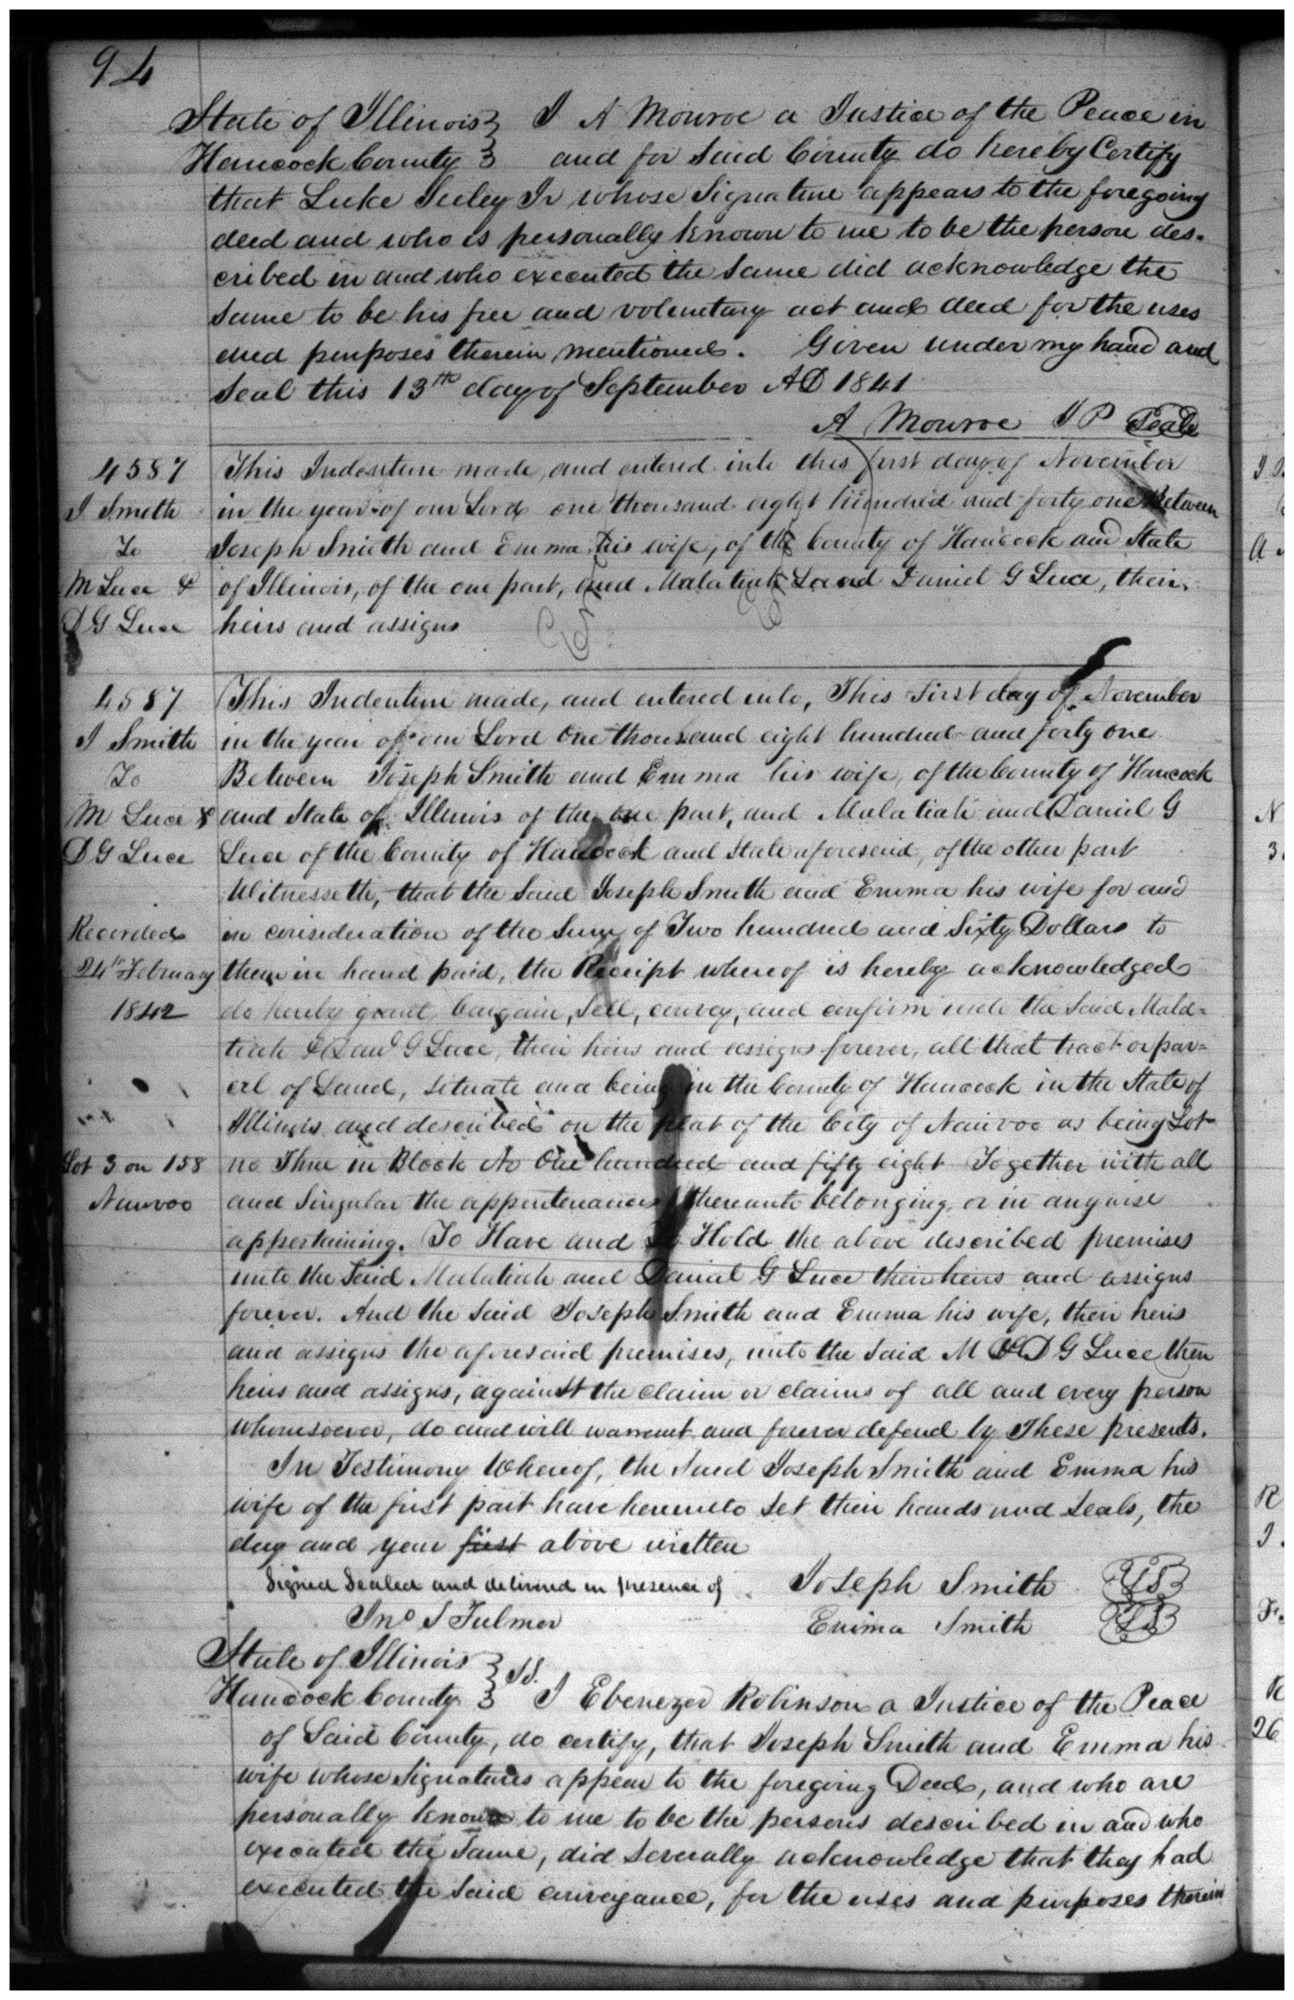 94
State of Illinois } I A Monroe a Justice of the Peace in
Hancock County } and for Said County do hereby Certify
that Luke Seeley Jr whose Signature appears to the foregoing
deed and who is personally known to me to be the person des-
cribed in and who executed the Same did acknowledge the
Same to be his free and voluntary act and deed for the uses
and purposes therein mentioned. Given under my hand and
Seal this 13th day of September AD 1841
A Monroe J P Seal
4587
J Smith
To
M Luce &
D G Luce
This Indenture made, and entered into this first day of November
in the year of our Lord one thousand eight hundred and forty one Between
Joseph Smith and Emma his wife, of the County of Hancock and State
of Illinois, of the one part, and Malatiah and Daniel G Luce, their
heirs and assigns
4587
J Smith
To
M Luce &
D G Luce
Recorded
24th February
1842
Lot 3 on 158
Nauvoo
This Indenture made, and entered into, This First day of November
in the year of our Lord One thousand eight hundred and forty one
Between Joseph Smith and Emma his wife, of the County of Hancock
and State of Illinois of the one part, and Malatiah and Daniel G
Luce of the County of Hancock and State aforesaid, of the other part
Witnesseth, that the Said Joseph Smith and Emma his wife for and
in consideration of the Sum of Two hundred and Sixty Dollars to
them in hand paid, the Receipt whereof is hereby acknowledged
do hereby grant bargain, Sell, convey, and confirm unto the Said Mala=
tiah & Danl G Luce, their heirs and assigns forever, all that tract or par=
cel of Land, situate and being in the County of Hancock in the State of
Illinois and described on the plat of the City of Nauvoo as being Lot
no Three in Block No One hundred and fifty eight Together with all
and Singular the appurtenances thereunto belonging, or in anywise
appertaining. To Have and To Hold the above described premises
unto the Said Malatiah and Daniel G Luce their heirs and assigns
forever. And the Said Joseph Smith and Emma his wife, their heirs
and assigns the aforesaid premises, unto the Said M & D G Luce their
heirs and assigns, against the claim or claims of all and every person
whomsoever, do and will warrant and forever defend by These presents.
In Testimony Whereof, the Said Joseph Smith and Emma his
wife of the first part have hereunto Set their hands and Seals, the
day and year first above written
Signed Sealed and delivered in presence of Joseph Smith LS
Jno S Fulmer Emma Smith LS
State of Illinois } SS.
Hancock County } I Ebenezer Robinson a Justice of the Peace
of Said County, do certify, that Joseph Smith and Emma his
wife whose Signatures appear to the foregoing Deed, and who are
personally known to me to be the persons described in and who
executed the Same, did Severally acknowledge that they had
executed the Said conveyance, for the uses and purposes therein